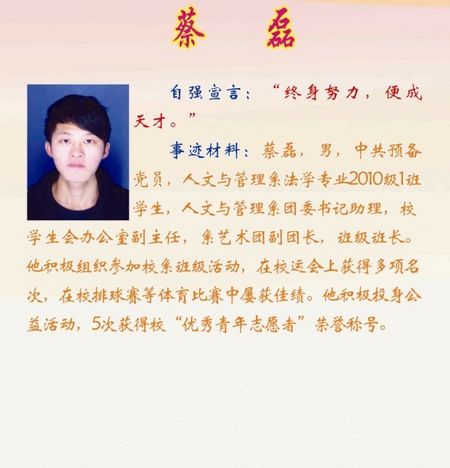 蔡 磊
自强宣言：“终身努力，便成
天才。”
事迹材料：蔡磊，男，中共预备
党员，人文与管理系法学专业2010级1班
学生，人文与管理系团委书记助理，校
学生会办公室副主任，系艺术团副团长，班级班长。
他积极组织参加校系班级活动，在校运会上获得多项名
次，在校排球赛等体育比赛中屡获佳绩。他积极投身公
益活动，5次获得校“优秀青年志愿者”荣誉称号。